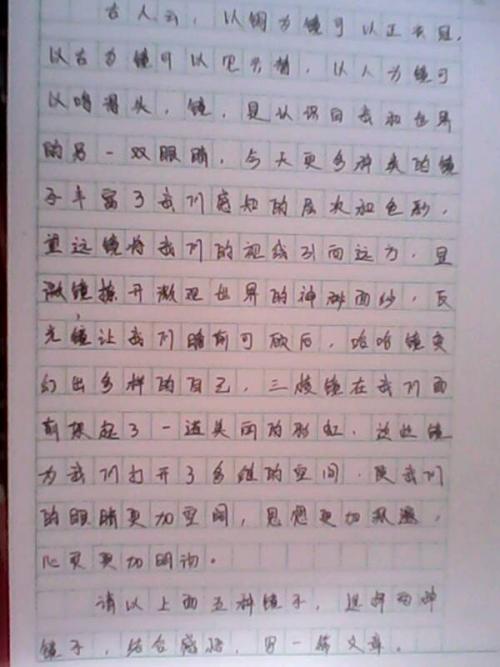 古人云，以铜为镜可以正衣冠，
以古为镜可以见兴替，以人为镜可
以明得失，镜，是认识自我和世界
的另一双眼睛，今天更多种类的镜
子丰富了我们感知的层次和色彩，
望远镜将我们的视线引向远方，显
微镜撩开微观世界的神秘面纱，反
光镜让我们瞻前可顾后，哈哈镜变
幻出多样的自己，三棱镜在我们面
前架起了一道美丽的彩虹，这些镜
为我们打开了多维的空间，使我们
的眼睛更加，思想更加，
心灵更加明
请以上面五种镜子，选择两种
镜子，结合感悟，写一篇文章。